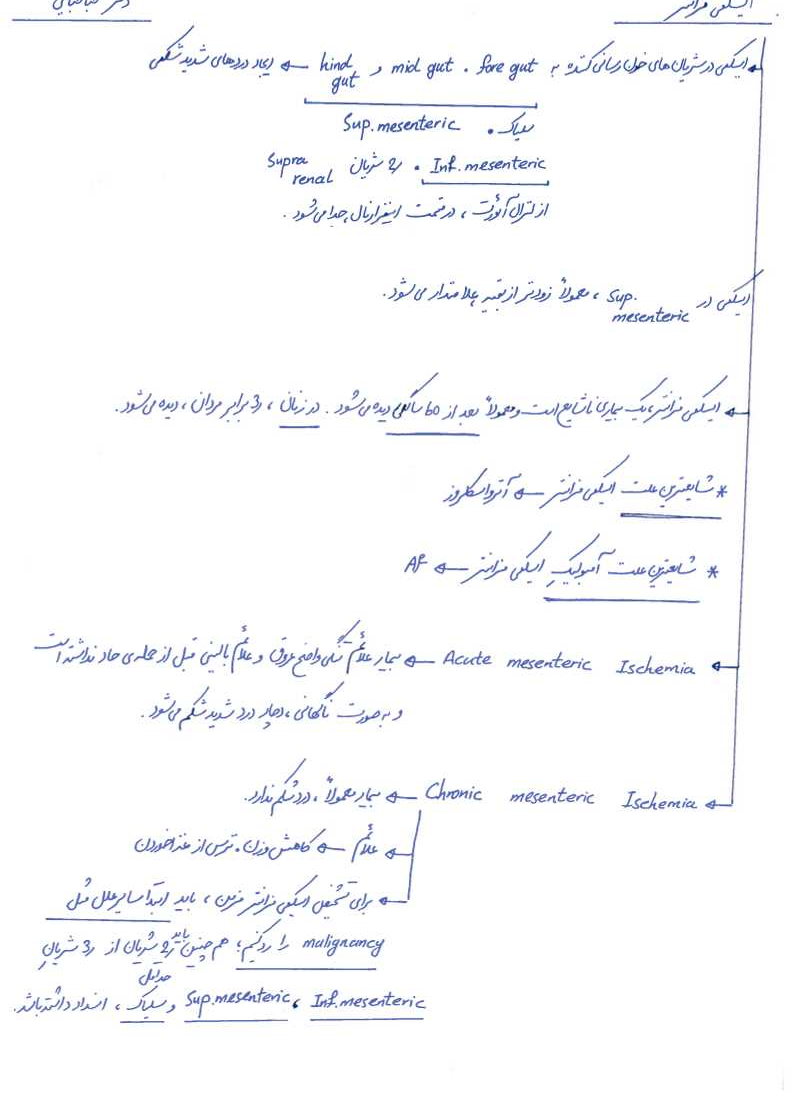 ایسکمی مزانتر
دکتر طباطبایی
ایسکمی در شریان های خون رسانی کننده به fore gut ، mid gut و hind gut ← ایجاد دردهای شدید شکمی
سلیاک ، Sup. mesenteric
Inf. mesenteric ، 2 شریان Supra renal
از لترال آئورت ، در قسمت اینفرارنال جدا می شود .
ایسکمی در Sup. mesenteric ، معمولاً زودتر از بقیه علامتدار می شود.
ایسکمی مزانتر، یک بیماری ناشایع است و معمولاً بعد از 60 سالگی دیده می شود . در زنان ، 3 برابر مردان ، دیده می شود .
* شایعترین علت ایسکمی مزانتر ← آترواسکلروز
* شایعترین علت آمبولیکِ ایسکمی مزانتر ← AF
Acute mesenteric Ischemia ← بیمار علائم تنگی واضح عروق و علائم بالینی قبل از حمله ی حاد نداشته است
و به صورت ناگهانی ، دچار درد شدید شکم می شود .
Chronic mesenteric Ischemia ← بیمار معمولاً ، درد شکم ندارد.
علائم ← کاهش وزن ، ترس از غذا خوردن
برای تشخیص ایسکمی مزانتر مزمن ، باید ابتدا سایر علل مثل
malignancy را رد کنیم ؛ هم چنین باید حداقل 2 شریان از 3 شریانِ
Inf. mesenteric ، Sup. mesenteric و سلیاک ، انسداد داشته باشد.